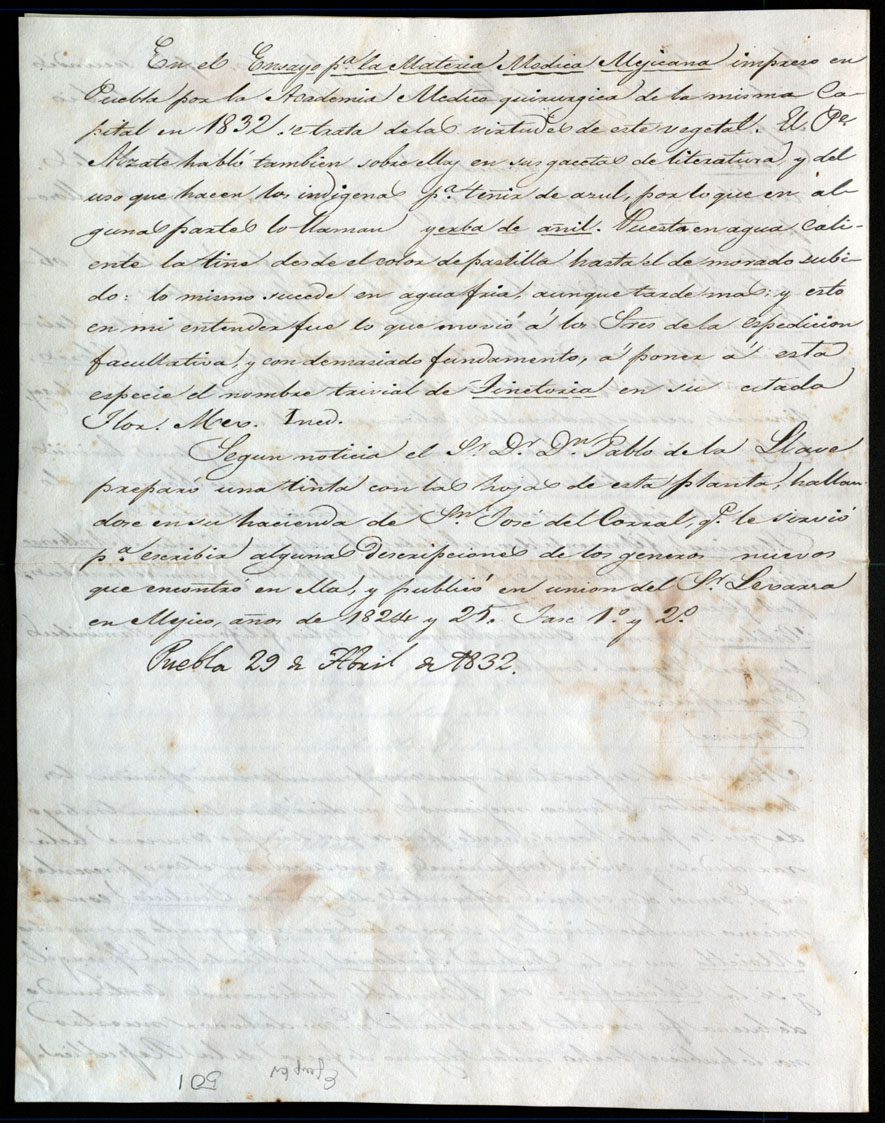 En el Ensayo pª la Materia Medica Mejicana impreso en
Puebla por la Academia Medico quirurgica de la misma Ca-
pital en 1832 se trata de las virtudes de este vegetal. El Pe.
Alzate habló tambien sobre ellas en sus gacetas de literatura, y del
uso que hacen los indigenas pª teñir de azul, por lo que en al-
gunas partes lo llaman yerba de añil. Puesta en agua cali-
ente la tiñe desde el color de pastilla hasta el de morado subi-
do: lo mismo sucede en agua fria, aunque tarde mas: y esto
en mi entender fue lo que movió á los Sres de la espedicion
facultativa, y con demasiado fundamento, á poner á esta
especie el nombre trivial de Tinctoria en su citada
Flor. Mex. Ined.
Segun noticia el Sr. Dr. Dn. Pablo de la Llave
preparó una tinta con las hojas de esta planta, hallan-
dose en su hacienda de Sn. José del Corral, qe. le sirvió
pª escribir algunas descripciones de los generos nuevos
que encontró en ella, y publicó en union del Sr. Lexarza
en Mejico, años de 1824 y 25. Fasc 1º y 2º
Puebla 29 de Abril de 1832.
501